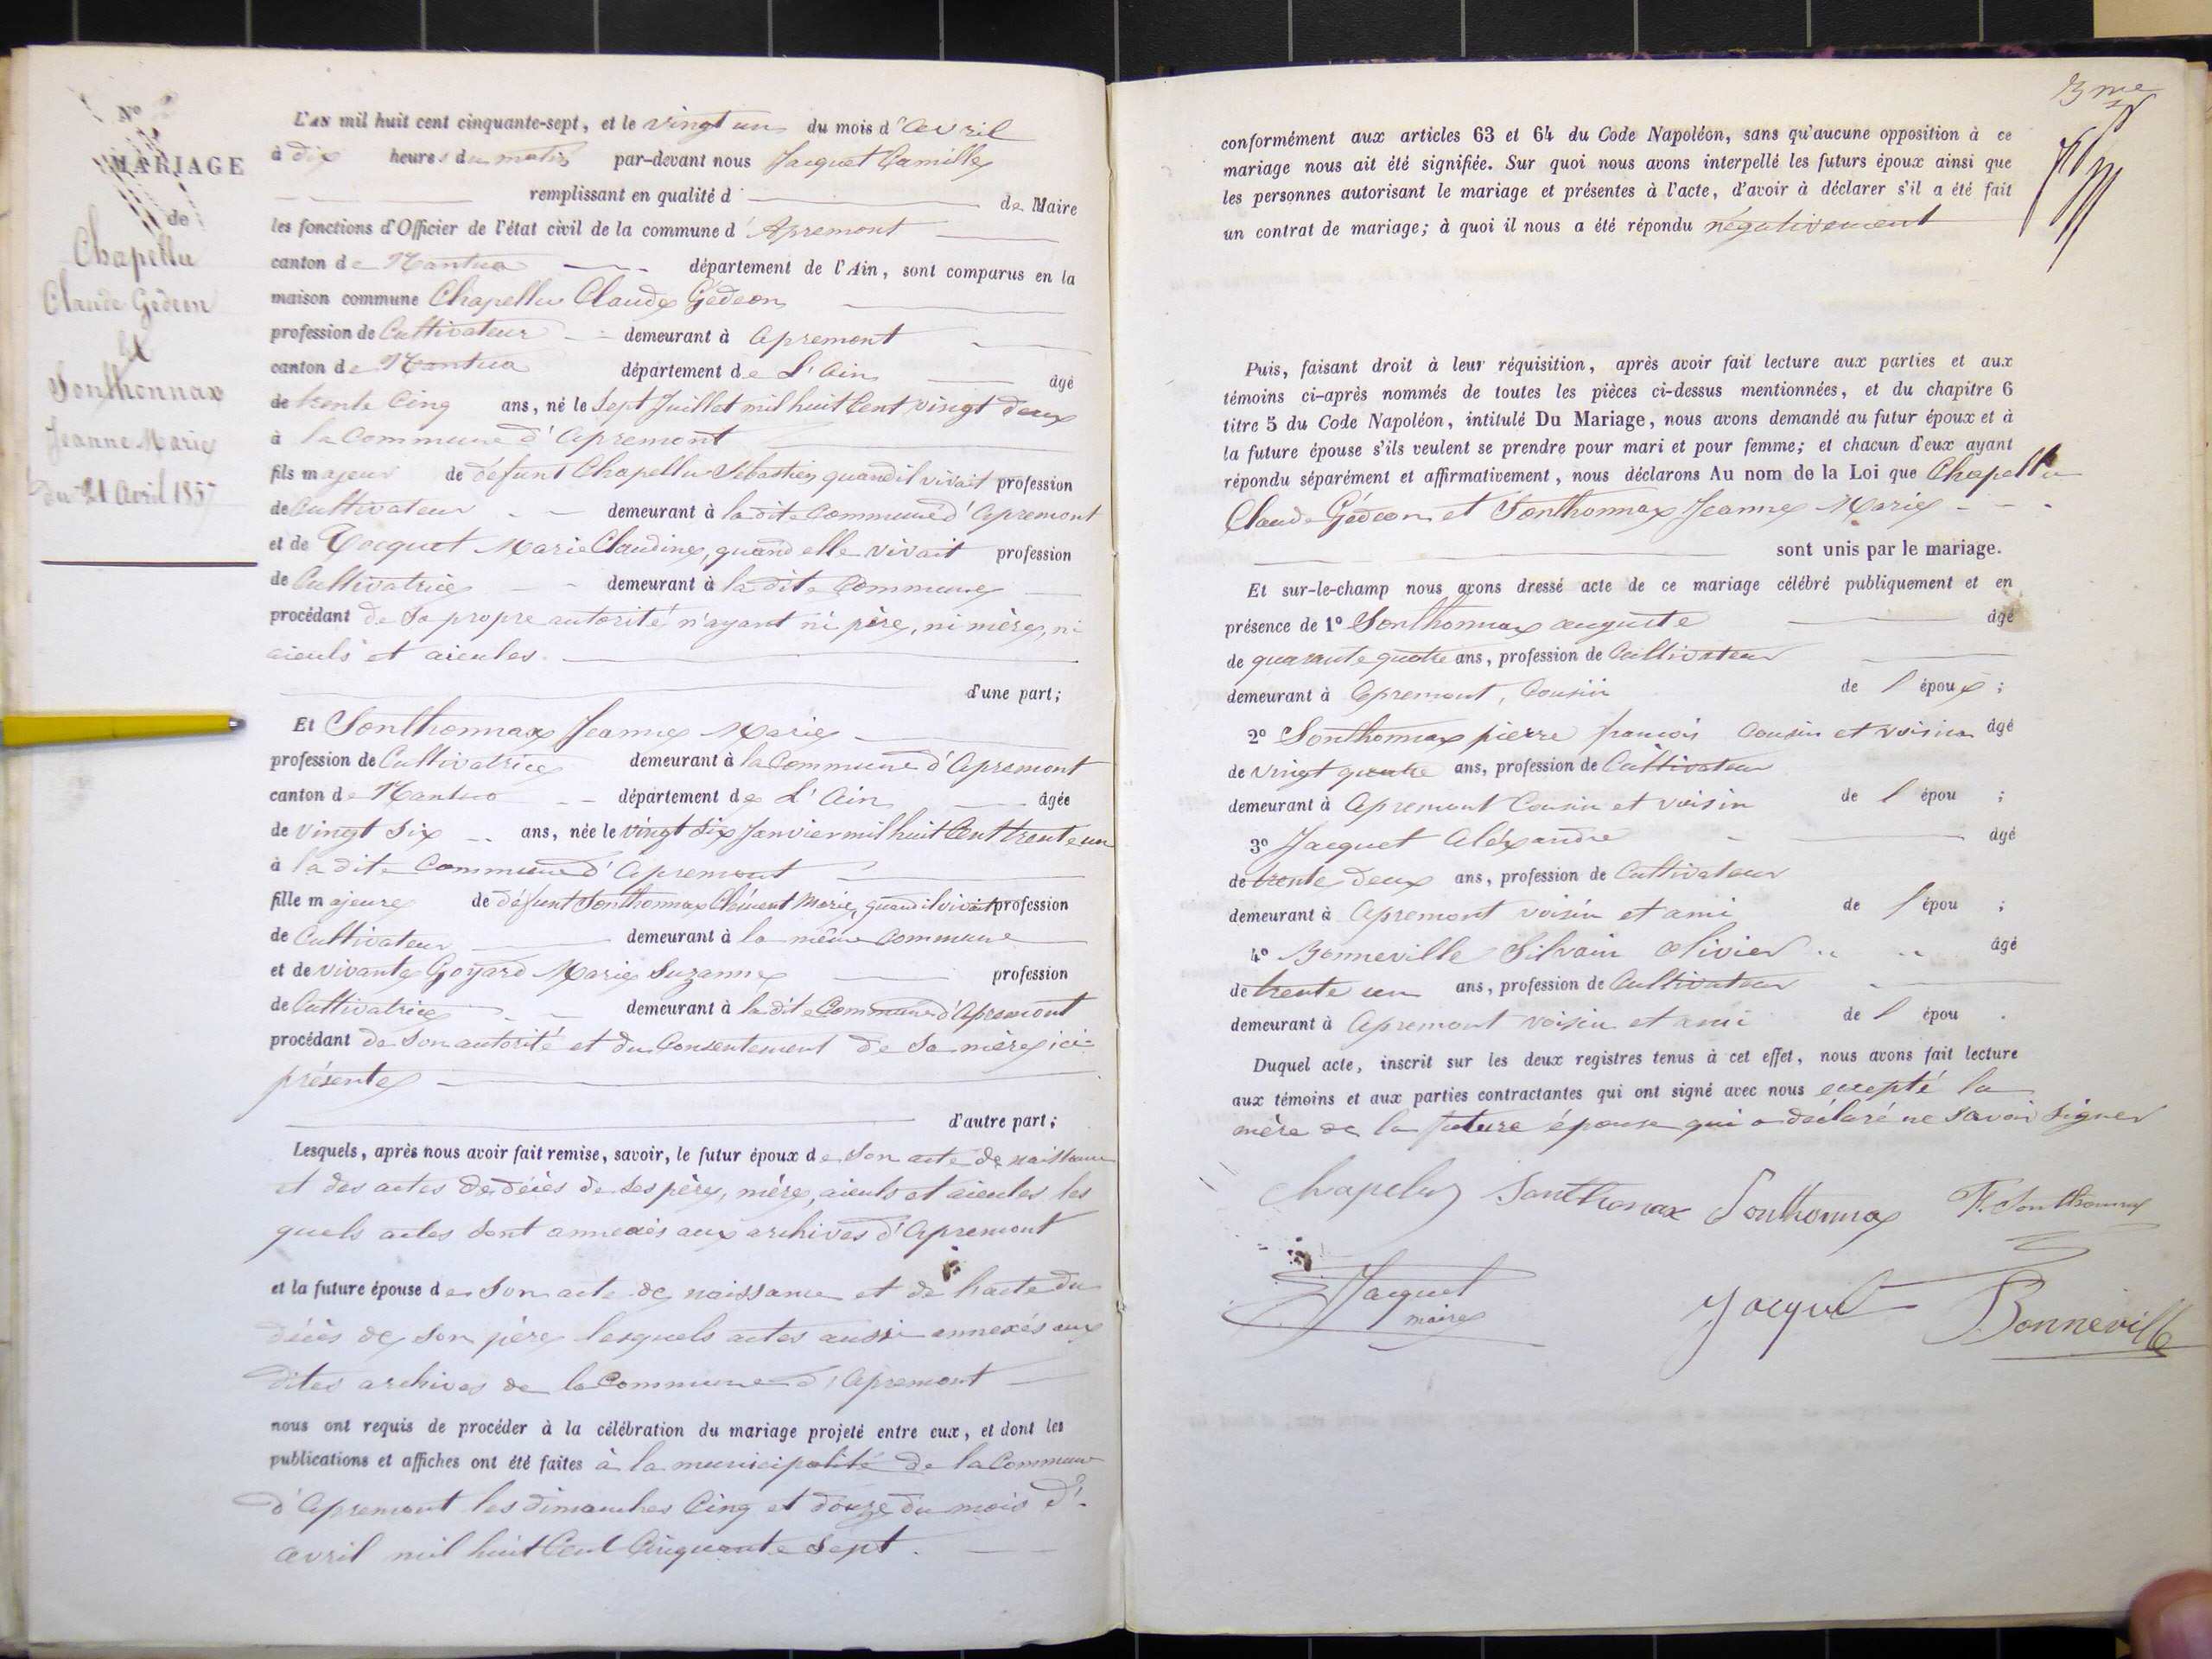 Nº
MARIAGE
de
Chapellu
Claude Gédeon
et
Sonthonnax
Jeanne Marie
du 21 Avril 1857
L'AN mil huit cent cinquante-sept, et le vingt un du mois d'avril
à dix heures du matin par-devant nous Jacquet Camille
remplissant en qualité d de Maire
les fonctions d'Officier de l'état civil de la commune d'Apremont
canton de Nantua département de l'Ain, sont comparus en la
maison commune Chapellu Claude Gédeon
profession de Cultivateur demeurant à apremont
canton de Nantua département de L'ain âgé
de trente Cinq ans, né le Sept Juillet mil huit Cent vingt deux
à la Commune d'apremont
fils majeur de défunt Chapellu Sébastien quand il vivait profession
de Cultivateur demeurant à la dite Commune d'apremont
et de Marie Claudine, quand elle vivait profession
de Cultivatrice demeurant à la dite Commune
procédant de Sa propre autorité n'ayant ni père, ni mère, ni
aieuls et aieules.
d'une part;
Et Sonthonnax Jeanne Marie
profession de Cultivatrice demeurant à la Commune d'apremont
canton de Nantua département de L'ain âgée
de vingt Six ans, née le vingt Six Janvier mil huit Cent trente un
à la dite Commune d'apremont
fille majeure de défunt Sonthonnax Clément Marie, quand il vivait profession
de Cultivateur demeurant à la même Commune
et de vivante Goyard Marie Suzanne profession
de Cultivatrice demeurant à la dite Commune d'apremont
procédant de Son autorité et du Consentement de Sa mère ici
présente
d'autre part;
Lesquels, après nous avoir fait remise, savoir, le futur époux de Son acte de naissance
et des actes de décès de Ses père, mère, aieuls et aieules les
quels actes Sont annexés aux archives d'apremont
et la future épouse de Son acte de naissance et de l'acte du
décès de Son père lesquels actes aussi annexés aux
dites archives de la Commune d'apremont
nous ont requis de procéder à la célébration du mariage projeté entre eux, et dont les
publications et affiches ont été faites à la municipalité de la Commune
d'apremont les dimanches Cinq et douze du mois d'
avril mil huit Cent Cinquante Sept.
3me
conformément aux articles 63 et 64 du Code Napoléon, sans qu'aucune opposition à ce
mariage nous ait été signifiée. Sur quoi nous avons interpellé les futurs époux ainsi que
les personnes autorisant le mariage et présentes à l'acte, d'avoir à déclarer s'il a été fait
un contrat de mariage; à quoi il nous a été répondu négativement
Puis, faisant droit à leur réquisition, après avoir fait lecture aux parties et aux
témoins ci-après nommés de toutes les pièces ci-dessus mentionnées, et du chapitre 6
titre 5 du Code Napoléon, intitulé Du Mariage, nous avons demandé au futur époux et à
la future épouse s'ils veulent se prendre pour mari et pour femme; et chacun d'eux ayant
répondu séparément et affirmativement, nous déclarons Au nom de la Loi que Chapellu
Claude Gédeon et Sonthonnax Jeanne Marie
sont unis par le mariage.
Et sur-le-champ nous avons dressé acte de ce mariage célébré publiquement et en
présence de 1º Sonthonnax auguste âgé
de quarante quatre ans, profession de Cultivateur
demeurant à apremont, Cousin de l époux ;
2º Sonthonnax pierre françois Cousin et voisin âgé
de vingt quatre ans, profession de Cultivateur
demeurant à apremont Cousin et voisin de l épou ;
3º Jacquet aléxandre âgé
de trente deux ans, profession de Cultivateur
demeurant à apremont voisin et ami de l épou ;
4º Bonneville Silvain olivier âgé
de trente un ans, profession de Cultivateur
demeurant à apremont voisin et ami de l épou .
Duquel acte, inscrit sur les deux registres tenus à cet effet, nous avons fait lecture
aux témoins et aux parties contractantes qui ont signé avec nous excepté la
mère de la future épouse qui a déclaré ne savoir signer
Chapelu Sonthonax Sonthonnax F. Sonthonnax
Jacquet
maire
Jacquet Bonneville